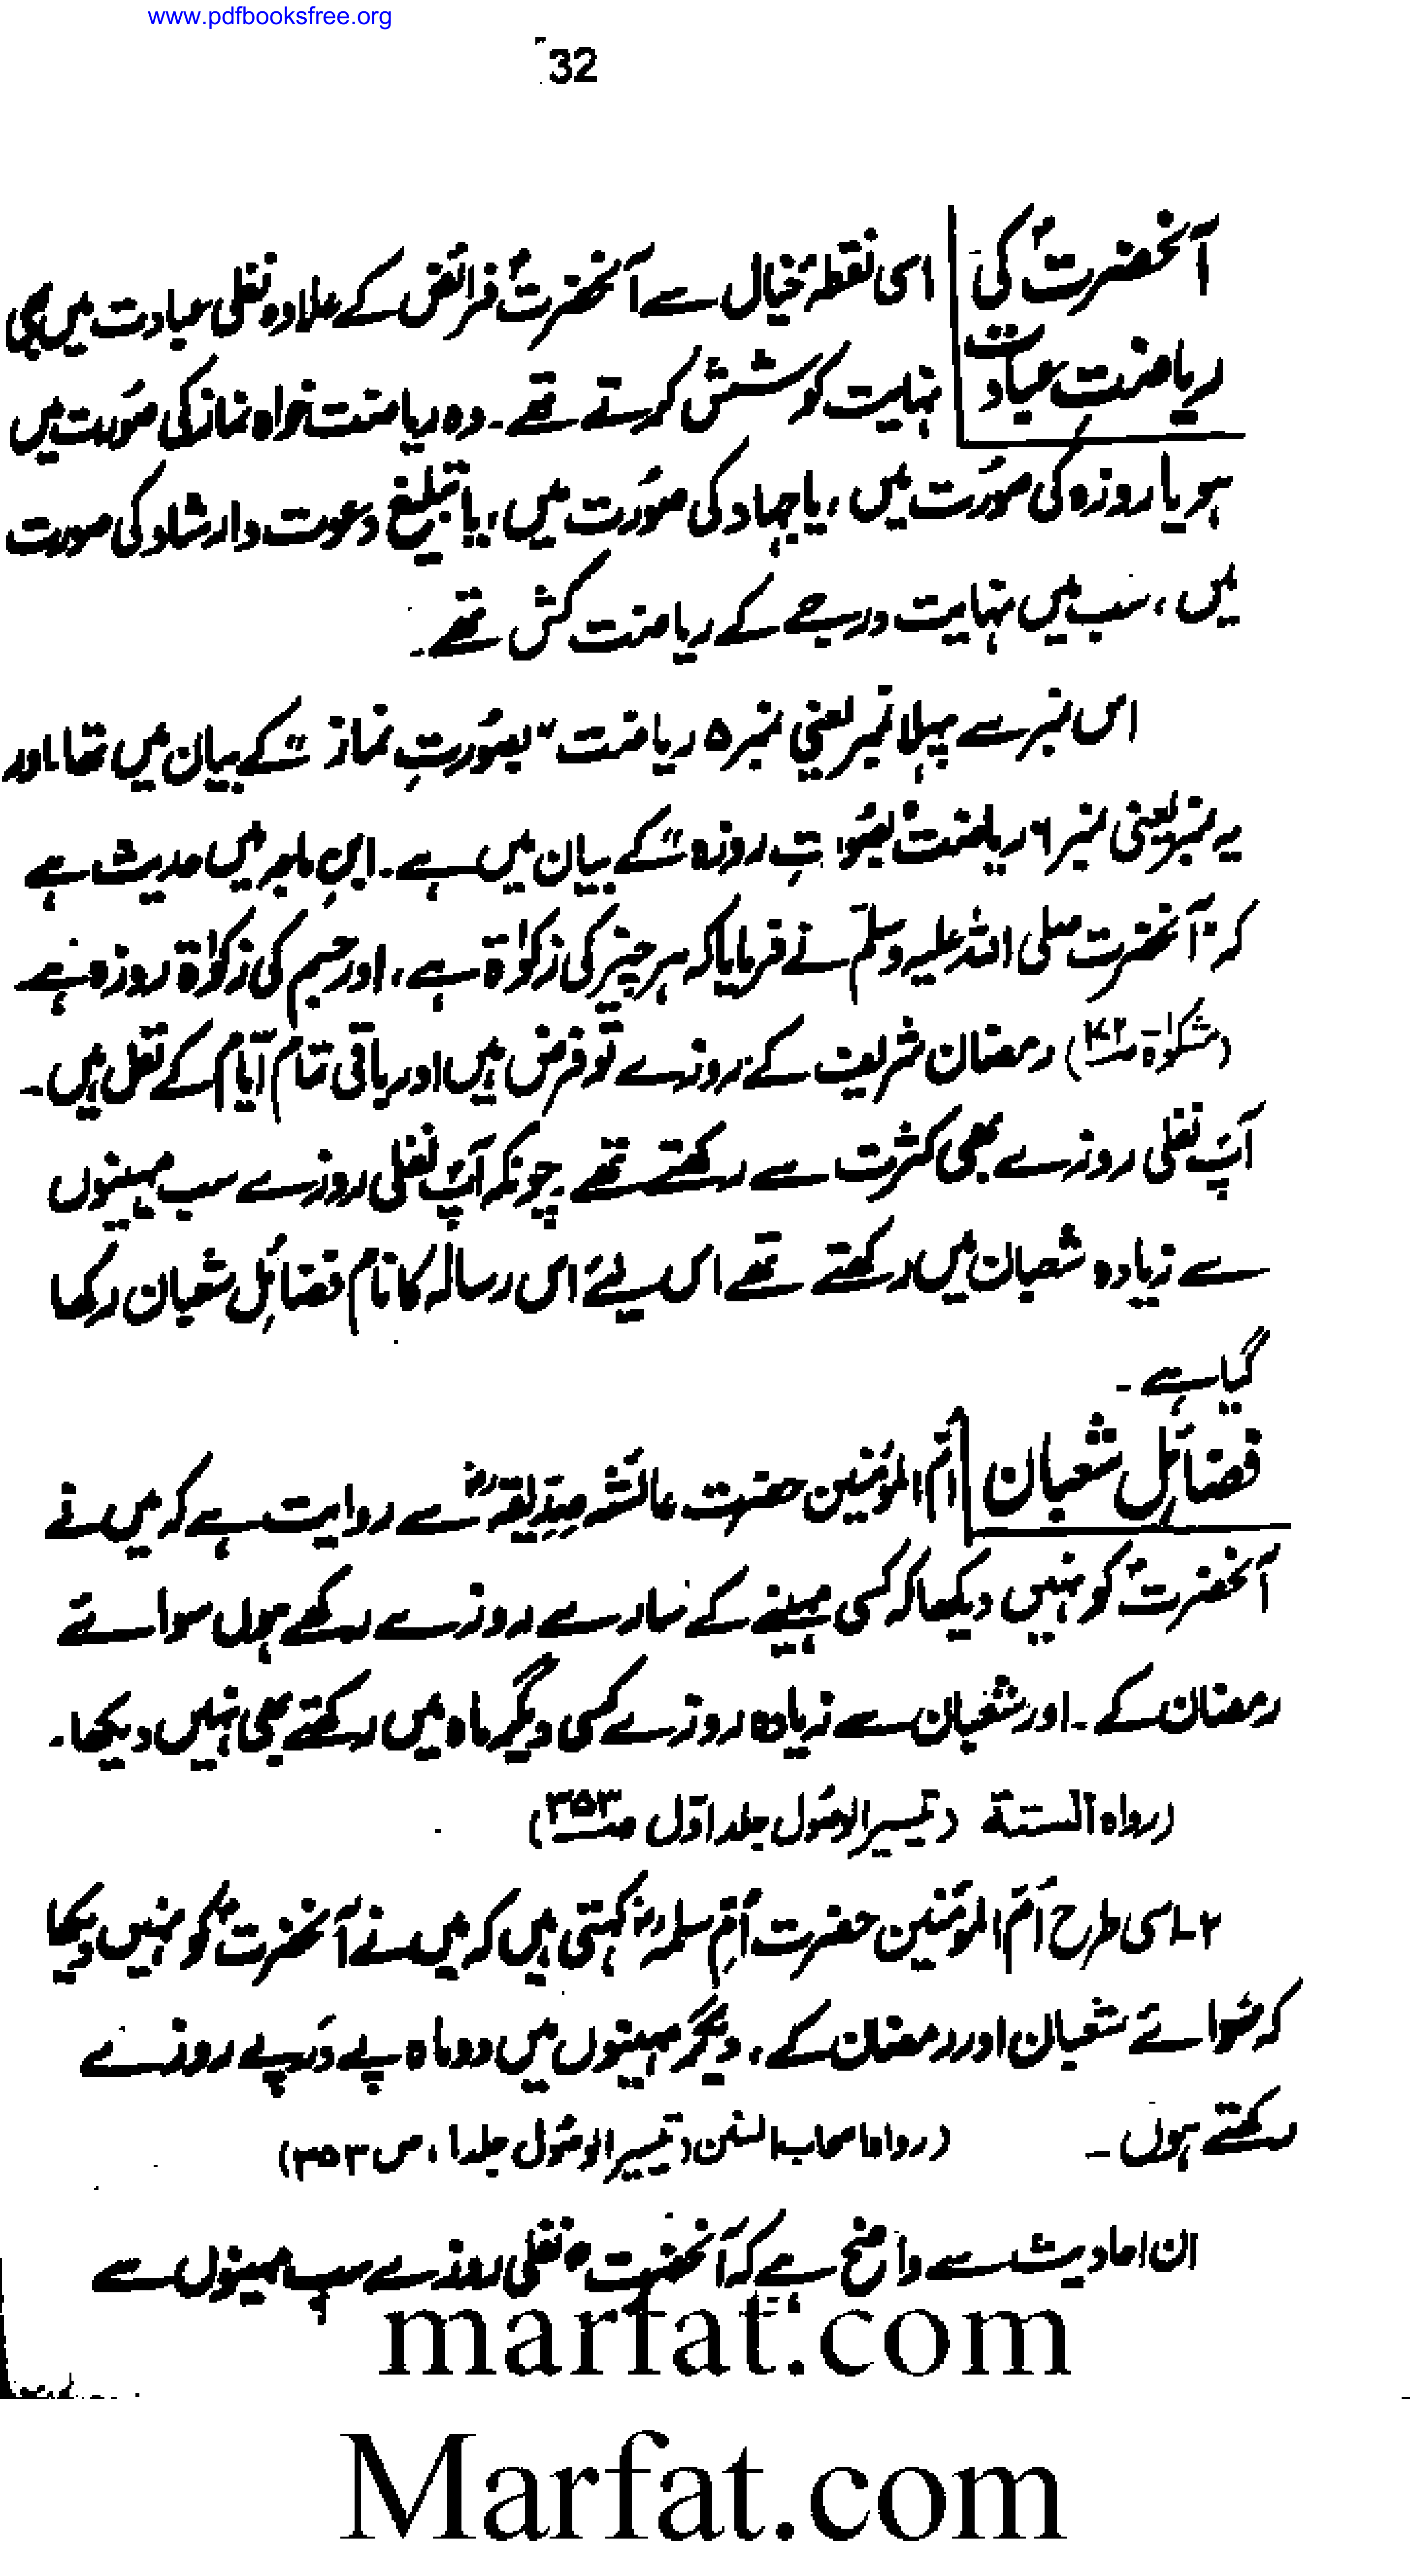 www.pdfbooksfree.org
32
آنحضرتؐ کی
ریاضتِ عبادت
اسی نقطۂ خیال سے آنحضرتؐ فرائض کے علاوہ نفلی عبادت میں بھی
نہایت کوشش کرتے تھے۔ وہ ریاضت خواہ نماز کی صُورت میں
ہو یا روزہ کی صُورت میں، یا جہاد کی صُورت میں، یا تبلیغ دعوت و ارشاد کی صورت
میں، سب میں نہایت درجے کے ریاضت کش تھے۔
اس نمبر سے پہلا نمبر یعنی نمبر ۵ ریاضت "بصُورتِ نماز" کے بیان میں تھا۔ اور
یہ نمبر یعنی نمبر ۶ ریاضت "بصُورتِ روزہ" کے بیان میں ہے۔ ابنِ ماجہ میں حدیث ہے
کہ "آنحضرت صلی اللہ علیہ وسلّم نے فرمایا کہ ہر چیز کی زکوٰۃ ہے، اور جسم کی زکوٰۃ روزہ ہے
(مشکوٰۃ) رمضان شریف کے روزے تو فرض ہیں اور باقی تمام ایّام کے نفل ہیں۔
آپؐ نفلی روزے بھی کثرت سے رکھتے تھے۔ چونکہ آپؐ نفلی روزے سب مہینوں
سے زیادہ شعبان میں رکھتے تھے اس لیئے اس رسالہ کا نام فضائلِ شعبان رکھا
گیا ہے۔
فضائلِ شعبان
اُمّ المؤمنین حضرت عائشہ صدِّیقہؓ سے روایت ہے کہ میں نے
آنحضرتؐ کو نہیں دیکھا کہ کسی مہینے کے سارے روزے رکھے ہوں سوائے
رمضان کے۔ اور شعبان سے زیادہ روزے کسی دیگر ماہ میں رکھتے بھی نہیں دیکھا۔
(رواہ الستۃ (تیسیر الوصُول جلد اوّل صـ۳۵۳)
۲۔ اسی طرح اُمّ المؤمنین حضرت اُمِّ سلمہؓ کہتی ہیں کہ میں نے آنحضرتؐ کو نہیں دیکھا
کہ سُوائے شعبان اور رمضان کے، دیگر مہینوں میں دو ماہ پے دَرپے روزے
رکھتے ہوں۔ (رواہ اصحاب السنن (تیسیر الوصُول جلد ۱، ص ۳۵۳)
ان احادیث سے واضح ہے کہ آنحضرتؐ نفلی روزے سب مہینوں سے
marfat.com
Marfat.com